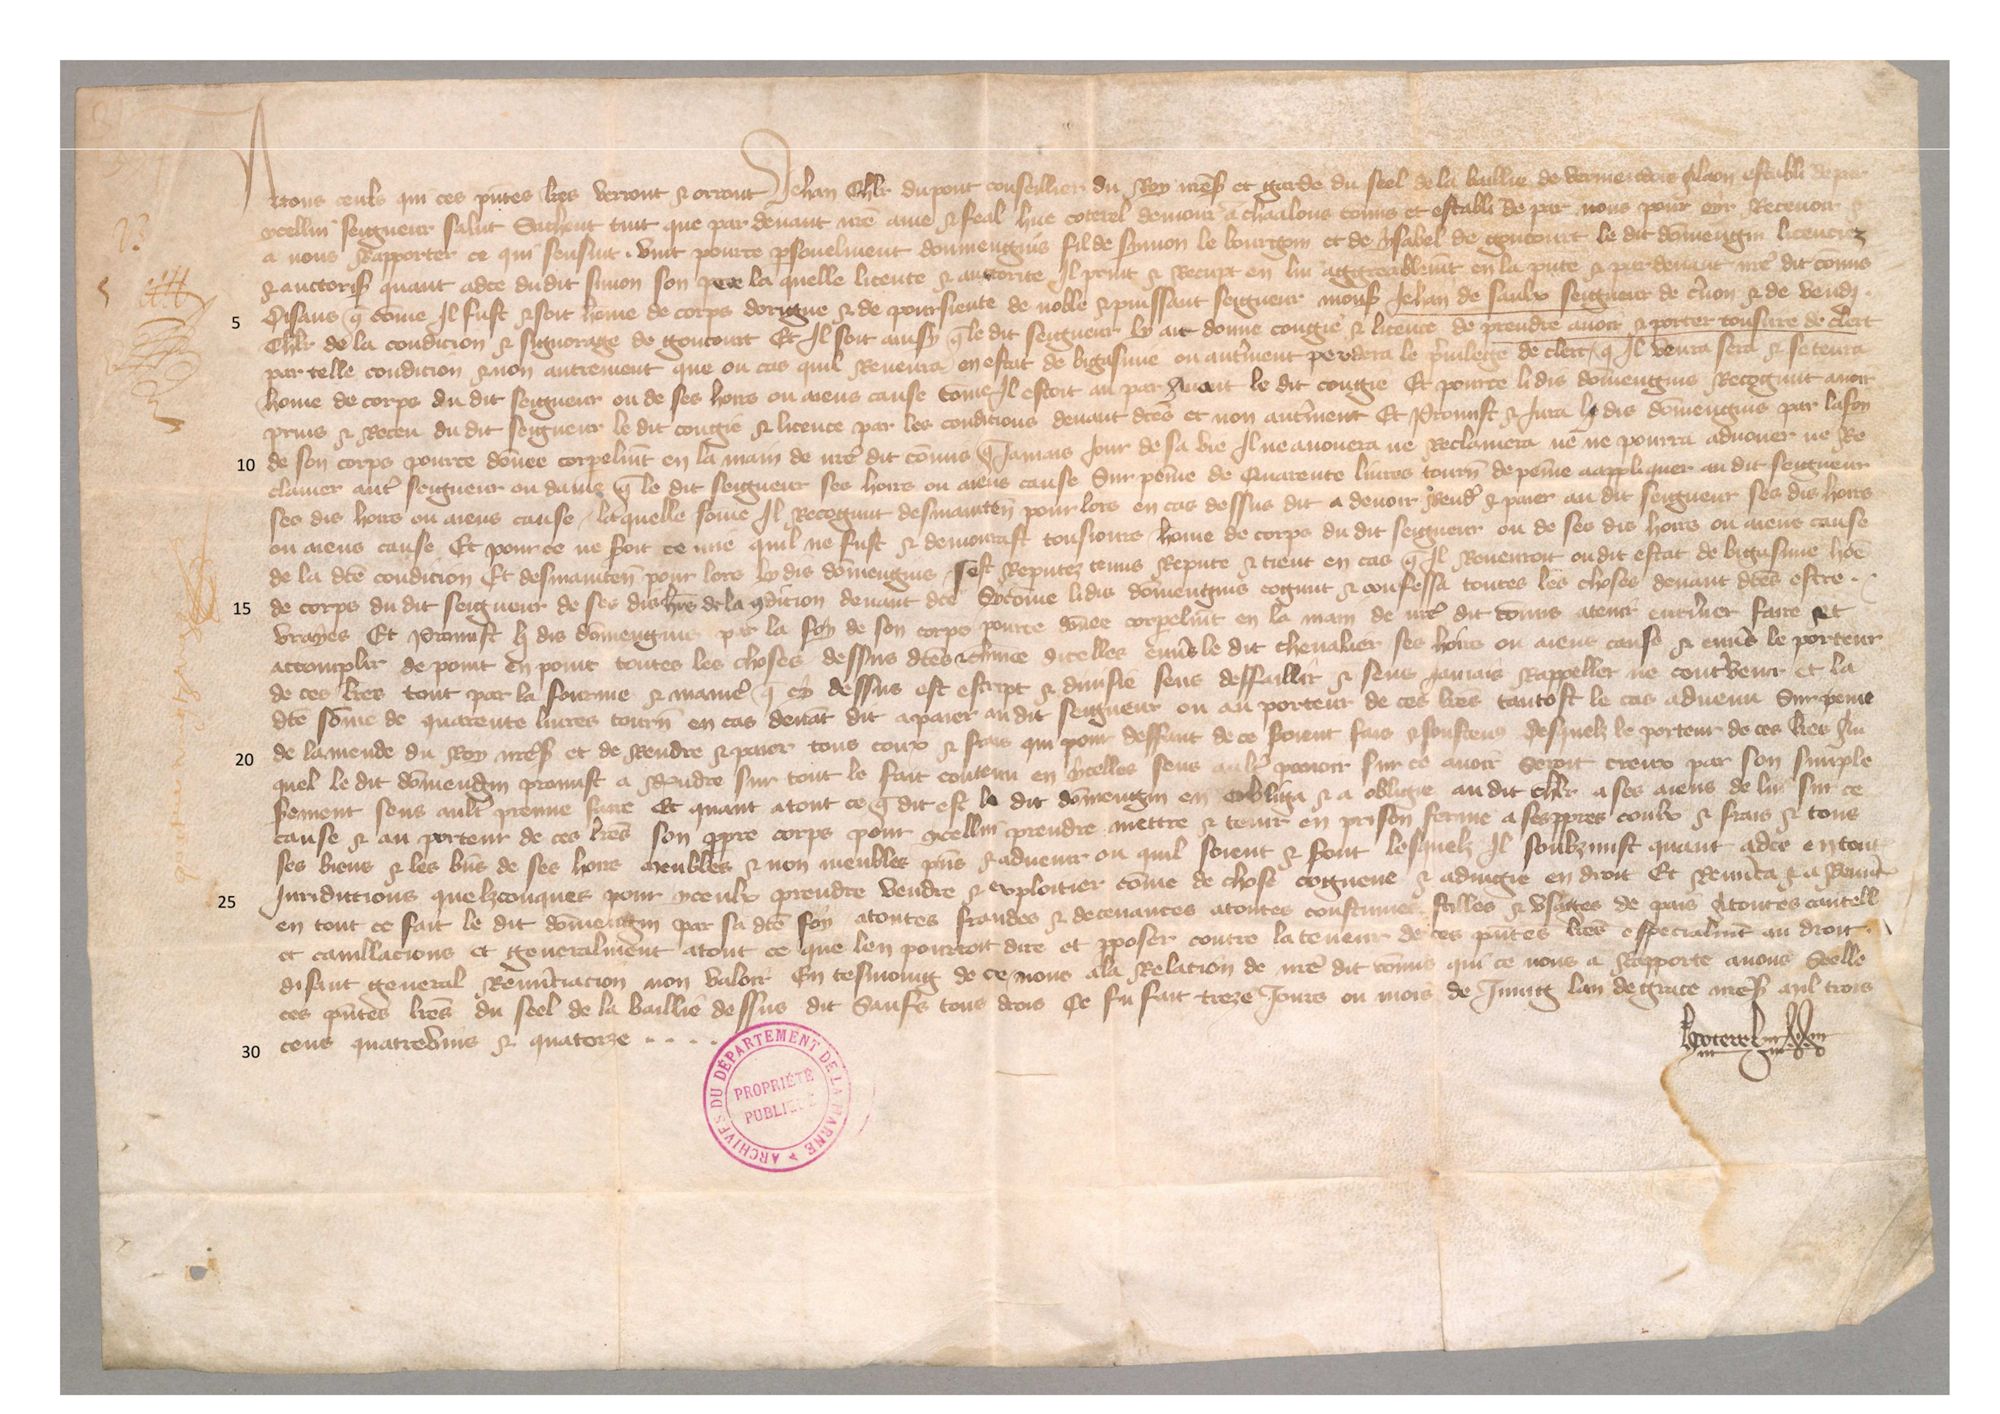 A tous ceulx qui ces pñtes lr̃es verront & orront Jehan Chlr dupont conseillier du Roy nr̃es̃ et garde du seel de la baillie de vermendois a laon establi de par
ycellui seigneur salut Sachent tuit que par devant nr̃e ame & feal hue coterel demour a chaalons com̃is et establi de par nous pour oyr Recevoir &
a nous Rapporter ce qui sensuit . vint pource p̱sonelment dommengins fil de symon le bourgoin et de ysabel de goucourt le dit dom̃engin licenciez
& auctoris̃ quant adce dudit simon son pere la quelle licence & auctorite Il print & Recupt en lui aggreablem̃t en la pñte & par devant nr̃e dit com̃is
5 Disans q̃ com̃e Il fust & soit hom̃e de corps dorigne & de poursiente de noble & puissant seigneur mons̃ Jehan de saulx seigneur de & de
Chlr de la condicion & signorage de goucourt Et Il soit ainsy q̃ le dit seigneur ly ait donne congie & licence de prendre avoir & porter tonsure de clert
par telle condicion & non autrement que ou cas quil Revenra en estat de bigasme ou autr̃ment perdera le p̃vilege de clert q̃ Il venra sera & se tenra
home de corps du dit seigneur ou de ses hoirs ou aiens cause com̃e Il estoit au par Avant le dit congie Et pource li dis dom̃engins Recognut avoir
prins & Receu du dit seigneur le dit congie & licence par les condicions devant dc̃es et non autr̃ment Et Promist & Jura ly dis dom̃engins par la foy
10 de son corps pource doñee corpelm̃t en la main de nr̃e dit com̃is q̃ Jamais Jour de sa vie Il ne avouera ne Reclamera ne ne pourra advouer ne Re
clamer autr̃ seigneur ou dame q̃ le dit seigneur ses hoirs ou aiens cause Sur peine de Quarente livres tourñ de peine a appliquer au dit seigneur
ses dis hoirs ou aiens cause / laquelle som̃e Il Recognut desmainteñ pour lors en cas dessus dit a devoir Rend̃ & paier au dit seigneur ses dis hoirs
ou aiens cause Et pour ce ne soit ce mie quil ne fust & demourast tousiours hom̃e de corps du dit seigneur ou de ses dis hoirs ou aiens cause
de la dc̃e condicion Et desmainteñ pour lors ly dis dom̃engins sest Reputez tenus Repute & tient en cas q̃ Il Revenroit oudit estat de bigasme hom̃e
15 de corps du dit seigneur de ses dis hr̃s de la 9dicion devant dc̃e Sy com̃e li dis dom̃engins cognut & confessa toutes les choses devant dc̃es estre .
vrayes Et Promist ly dis dom̃engins par la foy de son corps pource doñee corpelm̃t en la main de nr̃e dit com̃is a tenir entr̃iner faire et
accomplir de point en point toutes les choses dessus dc̃es & chũne dicelles enũs le dit chevalier ses hoirs ou aient cause & enũs le porteur
de ces lr̃es tout par la fourme & manier̃ q̃ cy dessus est escript & divisie sens deffaillir & sens jamais Rappeller ne contr̃venir et la
dc̃e som̃e de quarente livres tourñ en cas devãt dit a paier au dit seigneur ou au porteur de ces lr̃es tantost le cas advenu Sur peine
20 de lamende du Roy nr̃es̃ et de Rendre & paier tous coux & frais qui pour deffaut de ce seroient fais & soustenus desquelz le porteur de ces lr̃es Au
quel le dit dom̃engin promist a Respondre sur tout le fait contenu en ycelles sens aultr̃ povoir sur ce avoir Seroit creux par son simple
serement sens aultr̃ prenue faire Et quant a tout ce q̃ dit est le dit dom̃engin en Obliga & a obligie au dit chlr a ses aiens de lui sur ce
cause & au porteur de ces lr̃es son p̱pre corps pour ycellui prendre mettre & tenir en prison ferme a ses p̱pres coulx & frais & tous
ses biens & les biẽs de ses hoirs meubles & non meubles p̃ns & advenir ou quil soient & sont Lesquelz Il soubzmist quant adce en tout
25 Juridictions quelzconques pour yceulx prendre vendre & exploitier com̃e de chose cogneue & adiugie en droit Et Renũca & a Renũc
en tout ce fait le dit dom̃engin par sa dc̃e foy a toutes fraudes & decevances a toutes coustumes stilles & usaiges de pais A toutes cautell
et cavillacions et generalment a tout ce que len pourroit dire et p̱poser contre la teneur de ces pñtes lr̃es especialm̃t au droit .
disant general Renũciacion non valoir En tesmoing de ce nous a la Relacion de nr̃e dit com̃is qui ce nous a Rapporte avons Seelle
ces pñtes lr̃es du seel de la baillie dessus dit Saufs tous drois Ce fu fait treze Jours ou mois de Juing lan de grace nr̃es̃ mil trois
30 cens quatrevins & quatorze . . . .
H coterel
ARCHIVES DU DÉPARTEMENT DE LA MARNE
PROPRIÉTÉ
PUBLIQUE